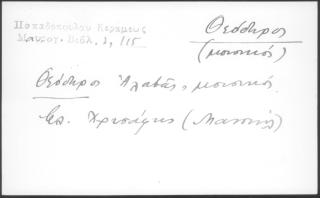 Παπαδοπούλου Κεραμέως
Μαυρογ. Βιβλ. 1, 115
Θεόδωρος
(μουσικός)
Θεόδωρος Ἀλαβᾶς, μουσικός.
Χρυσάφης (Μανουήλ)